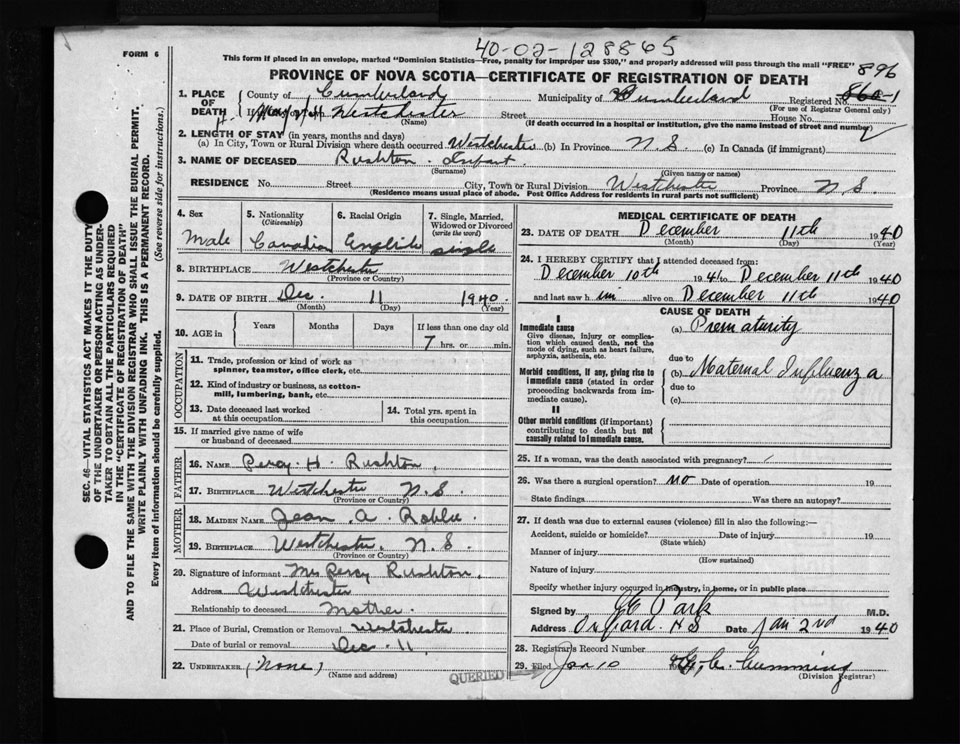 40-02-128865
FORM 6
This form if placed in an envelope, marked "Dominion Statistics—Free, penalty for improper use $300," and properly addressed will pass through the mail "FREE"
896
PROVINCE OF NOVA SCOTIA—CERTIFICATE OF REGISTRATION OF DEATH
1. PLACE OF DEATH
County of Cumberland Municipality of Cumberland Registered No. 860-1
(For use of Registrar General only)
Westchester Street House No.
(Name) (If death occurred in a hospital or institution, give the name instead of street and number)
2. LENGTH OF STAY (in years, months and days)
(a) In City, Town or Rural Division where death occurred Westchester (b) In Province N.S. (c) In Canada (if immigrant)
3. NAME OF DECEASED Rushton Infant
(Surname) (Given name or names)
RESIDENCE No. Street City, Town or Rural Division Westchester Province N.S.
(Residence means usual place of abode. Post Office Address for residents in rural parts not sufficient)
4. Sex
Male
5. Nationality
(Citizenship)
Canadian
6. Racial Origin
English
7. Single, Married,
Widowed or Divorced
(write the word)
single
8. BIRTHPLACE Westchester
(Province or Country)
9. DATE OF BIRTH Dec. 11 1940.
(Month) (Day) (Year)
10. AGE in
Years Months Days If less than one day old
7 hrs. or min.
OCCUPATION
11. Trade, profession or kind of work as
spinner, teamster, office clerk, etc.
12. Kind of industry or business, as cotton-
mill, lumbering, bank, etc.
13. Date deceased last worked
at this occupation
14. Total yrs. spent in
this occupation
15. If married give name of wife
or husband of deceased
FATHER
16. NAME Percy H. Rushton.
17. BIRTHPLACE Westchester N.S.
(Province or Country)
MOTHER
18. MAIDEN NAME Jean A.
19. BIRTHPLACE Westchester. N.S.
(Province or Country)
20. Signature of informant Mrs Percy Rushton.
Address Westchester
Relationship to deceased Mother.
21. Place of Burial, Cremation or Removal Westchester
Date of burial or removal Dec. 11.
22. UNDERTAKER (None)
(Name and address)
MEDICAL CERTIFICATE OF DEATH
23. DATE OF DEATH December 11th 1940
(Month) (Day) (Year)
24. I HEREBY CERTIFY that I attended deceased from:
December 10th 194 to December 11th 1940
and last saw him alive on December 11th 1940
CAUSE OF DEATH
I
Immediate cause
Give disease, injury or complica-
tion which caused death, not the
mode of dying, such as heart failure,
asphyxia, asthenia, etc.
(a) Prematurity
due to
Morbid conditions, if any, giving rise to
immediate cause (stated in order
proceeding backwards from im-
mediate cause).
(b) Maternal Influenza
due to
(c)
II
Other morbid conditions (if important)
contributing to death but not
causally related to immediate cause.
25. If a woman, was the death associated with pregnancy?
26. Was there a surgical operation? no Date of operation 19
State findings Was there an autopsy?
27. If death was due to external causes (violence) fill in also the following:—
Accident, suicide or homicide? Date of injury 19
(State which)
Manner of injury
(How sustained)
Nature of injury
Specify whether injury occurred in industry, in home, or in public place
Signed by Park M.D.
Address Oxford. N S Date Jan 2nd 1940
28. Registrar's Record Number
29. Filed Jan 10 Cumming
(Division Registrar)
QUERIED
SEC. 46—VITAL STATISTICS ACT MAKES IT THE DUTY
OF THE UNDERTAKER OR PERSON ACTING AS UNDER-
TAKER TO OBTAIN ALL THE PARTICULARS REQUIRED
IN THE "CERTIFICATE OF REGISTRATION OF DEATH"
AND TO FILE THE SAME WITH THE DIVISION REGISTRAR WHO SHALL ISSUE THE BURIAL PERMIT.
WRITE PLAINLY WITH UNFADING INK. THIS IS A PERMANENT RECORD.
Every item of information should be carefully supplied. (See reverse side for instructions.)